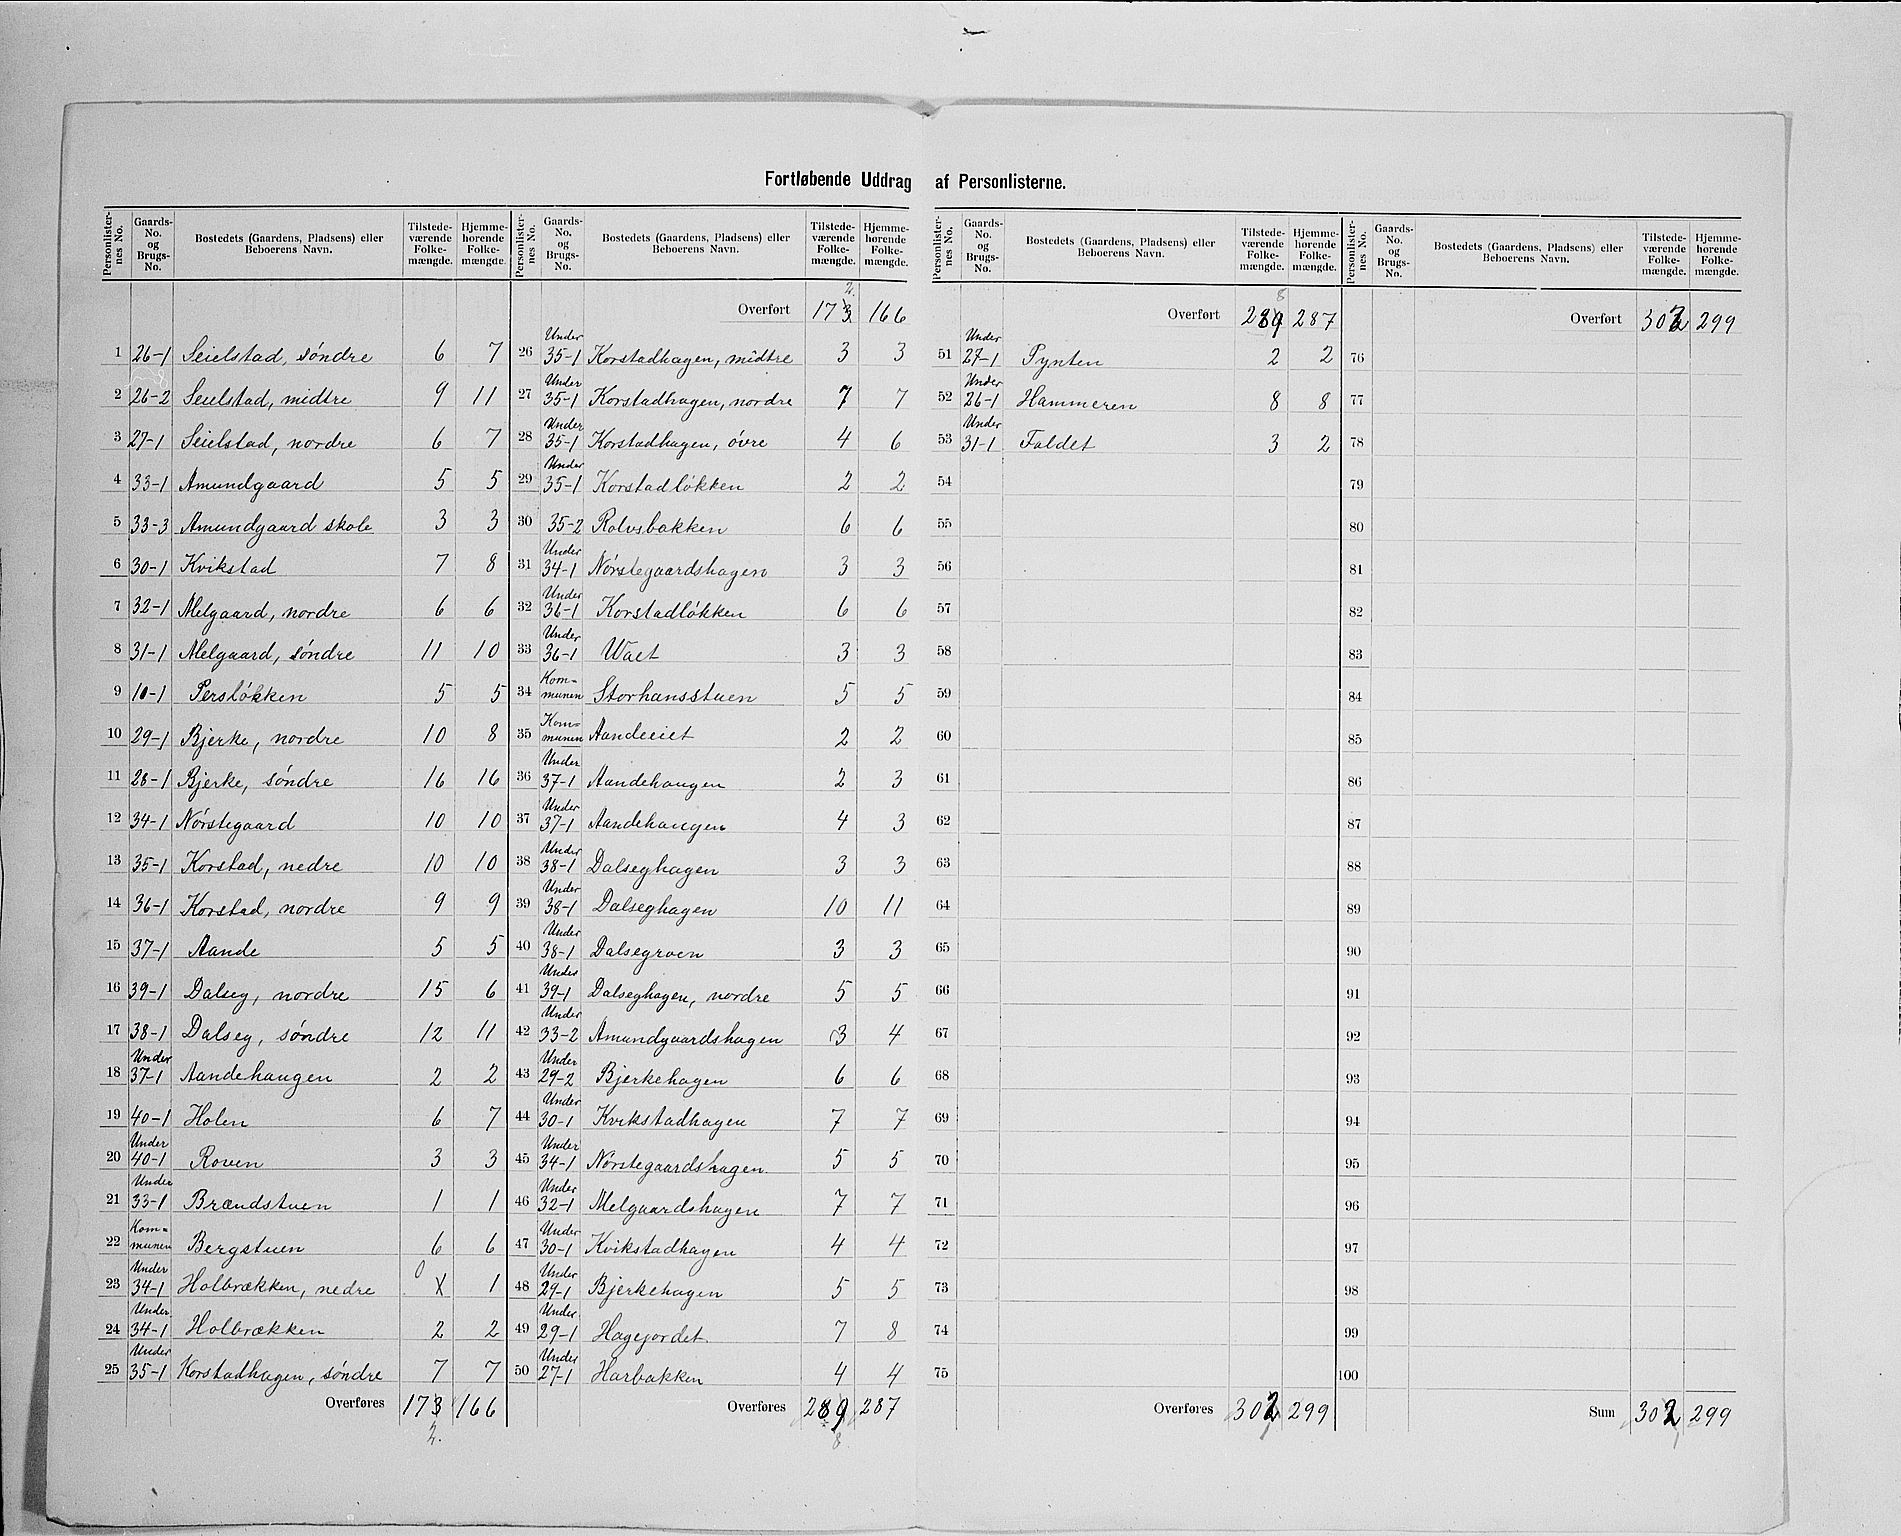 Fortløbende Uddrag af Personlisterne.
Personlister-nes No. | Gaards-No. og Brugs-No. | Bostedets (Gaardens, Pladsens) eller Beboerens Navn. | Tilstede-værende Folke-mængde. | Hjemme-hørende Folke-mængde.
1 26-1 Seielstad, søndre 6 7
2 26-2 Seielstad, midtre 9 11
3 27-1 Seielstad, nordre 6 7
4 33-1 Amundgaard 5 5
5 33-3 Amundgaard skole 3 3
6 30-1 Kvikstad 7 8
7 32-1 Melgaard, nordre 6 6
8 31-1 Melgaard, søndre 11 10
9 10-1 Persløkken 5 5
10 29-1 Bjerke, nordre 10 8
11 28-1 Bjerke, søndre 16 16
12 34-1 Nørstegaard 10 10
13 35-1 Korstad, nedre 10 10
14 36-1 Korstad, nordre 9 9
15 37-1 Aande 5 5
16 39-1 Dalseg, nordre 15 6
17 38-1 Dalseg, søndre 12 11
18 Under 37-1 Aandehaugen 2 2
19 40-1 Holen 6 7
20 Under 40-1 Roven 3 3
21 Under 33-1 Brændstuen 1 1
22 Kom=munen Bergstuen 6 6
23 Under 34-1 Holbrækken, nedre 0 1
24 Under 34-1 Holbrækken 2 2
25 Under 35-1 Korstadhagen, søndre 7 7
Overføres 173 166
2.
Personlister-nes No. | Gaards-No. og Brugs-No. | Bostedets (Gaardens, Pladsens) eller Beboerens Navn. | Tilstede-værende Folke-mængde. | Hjemme-hørende Folke-mængde.
2.
Overført 173 166
26 Under 35-1 Korstadhagen, midtre 3 3
27 Under 35-1 Korstadhagen, nordre 7 7
28 Under 35-1 Korstadhagen, øvre 4 6
29 Under 35-1 Korstadløkken 2 2
30 35-2 Rolvsbakken 6 6
31 Under 34-1 Nørstegaardshagen 3 3
32 Under 36-1 Korstadløkken 6 6
33 Under 36-1 Waet 3 3
34 Kom=munen Storhansstuen 5 5
35 Kom=munen Aandeeiet 2 2
36 Under 37-1 Aandehaugen 2 3
37 Under 37-1 Aandehaugen 4 3
38 Under 38-1 Dalseghagen 3 3
39 Under 38-1 Dalseghagen 10 11
40 Under 38-1 Dalsegroen 3 3
41 Under 39-1 Dalseghagen, nordre 5 5
42 Under 33-2 Amundgaardshagen 3 4
43 Under 29-2 Bjerkehagen 6 6
44 Under 30-1 Kvikstadhagen 7 7
45 Under 34-1 Nørstegaardshagen 5 5
46 Under 32-1 Melgaardshagen 7 7
47 Under 30-1 Kvikstadhagen 4 4
48 Under 29-1 Bjerkehagen 5 5
49 Under 29-1 Hagejordet 7 8
50 Under 27-1 Harbakken 4 4
Overføres 289 287
8
Personlister-nes No. | Gaards-No. og Brugs-No. | Bostedets (Gaardens, Pladsens) eller Beboerens Navn. | Tilstede-værende Folke-mængde. | Hjemme-hørende Folke-mængde.
8
Overført 289 287
51 Under 27-1 Pynten 2 2
52 Under 26-1 Hammeren 8 8
53 Under 31-1 Faldet 3 2
54
55
56
57
58
59
60
61
62
63
64
65
66
67
68
69
70
71
72
73
74
75
Overføres 302 299
1
Personlister-nes No. | Gaards-No. og Brugs-No. | Bostedets (Gaardens, Pladsens) eller Beboerens Navn. | Tilstede-værende Folke-mængde. | Hjemme-hørende Folke-mængde.
Overført 302 299
76
77
78
79
80
81
82
83
84
85
86
87
88
89
90
91
92
93
94
95
96
97
98
99
100
Sum 302 299
1